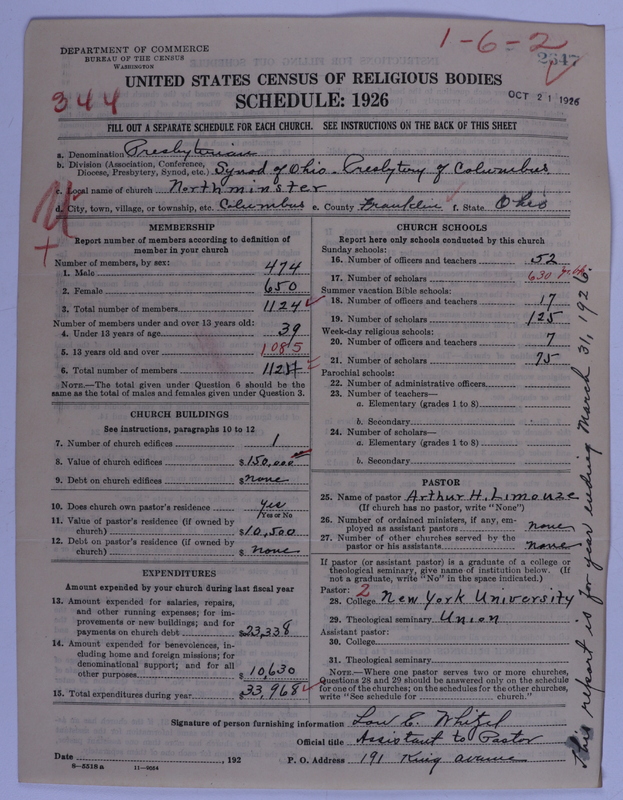 1-6-2
2347
DEPARTMENT OF COMMERCE
BUREAU OF THE CENSUS
WASHINGTON
UNITED STATES CENSUS OF RELIGIOUS BODIES
344
SCHEDULE: 1926
OCT 21 1926
FILL OUT A SEPARATE SCHEDULE FOR EACH CHURCH. SEE INSTRUCTIONS ON THE BACK OF THIS SHEET
a. Denomination Presbyterian
b. Division (Association, Conference, Diocese, Presbytery, Synod, etc.) Synod of Ohio - Presbytery of Columbus
c. Local name of church Northminster
d. City, town, village, or township, etc. Columbus e. County Franklin f. State Ohio
MEMBERSHIP
Report number of members according to definition of
member in your church
Number of members, by sex:
1. Male 474
2. Female 650
3. Total number of members 1124
Number of members under and over 13 years old:
4. Under 13 years of age 39
5. 13 years old and over 1085
6. Total number of members 1124
NOTE.—The total given under Question 6 should be the
same as the total of males and females given under Question 3.
CHURCH BUILDINGS
See instructions, paragraphs 10 to 12
7. Number of church edifices 1
8. Value of church edifices $150,000
9. Debt on church edifices $none
10. Does church own pastor's residence yes
Yes or No
11. Value of pastor's residence (if owned by
church) $10,500
12. Debt on pastor's residence (if owned by
church) $none
EXPENDITURES
Amount expended by your church during last fiscal year
13. Amount expended for salaries, repairs,
and other running expenses; for im-
provements or new buildings; and for
payments on church debt $23,338
14. Amount expended for benevolences, in-
cluding home and foreign missions; for
denominational support; and for all
other purposes $10,630
15. Total expenditures during year $33,968
CHURCH SCHOOLS
Report here only schools conducted by this church
Sunday schools:
16. Number of officers and teachers 52
17. Number of scholars 630
Summer vacation Bible schools:
18. Number of officers and teachers 17
19. Number of scholars 125
Week-day religious schools:
20. Number of officers and teachers 7
21. Number of scholars 75
Parochial schools:
22. Number of administrative officers
23. Number of teachers—
a. Elementary (grades 1 to 8)
b. Secondary
24. Number of scholars—
a. Elementary (grades 1 to 8)
b. Secondary
PASTOR
25. Name of pastor Arthur H. Limouze
(If church has no pastor, write "None")
26. Number of ordained ministers, if any, em-
ployed as assistant pastors none
27. Number of other churches served by the
pastor or his assistants none
If pastor (or assistant pastor) is a graduate of a college or
theological seminary, give name of institution below. (If
not a graduate, write "No" in the space indicated.)
Pastor: 2
28. College New York University
29. Theological seminary Union
Assistant pastor:
30. College
31. Theological seminary
NOTE.—Where one pastor serves two or more churches,
Questions 28 and 29 should be answered only on the schedule
for one of the churches; on the schedules for the other churches,
write "See schedule for church."
This report is for year ending March 31, 1926.
Signature of person furnishing information Lou E. Whitzel
Official title Assistant to Pastor
Date , 192 P. O. Address 191 King avenue
8—5518 a 11—9554